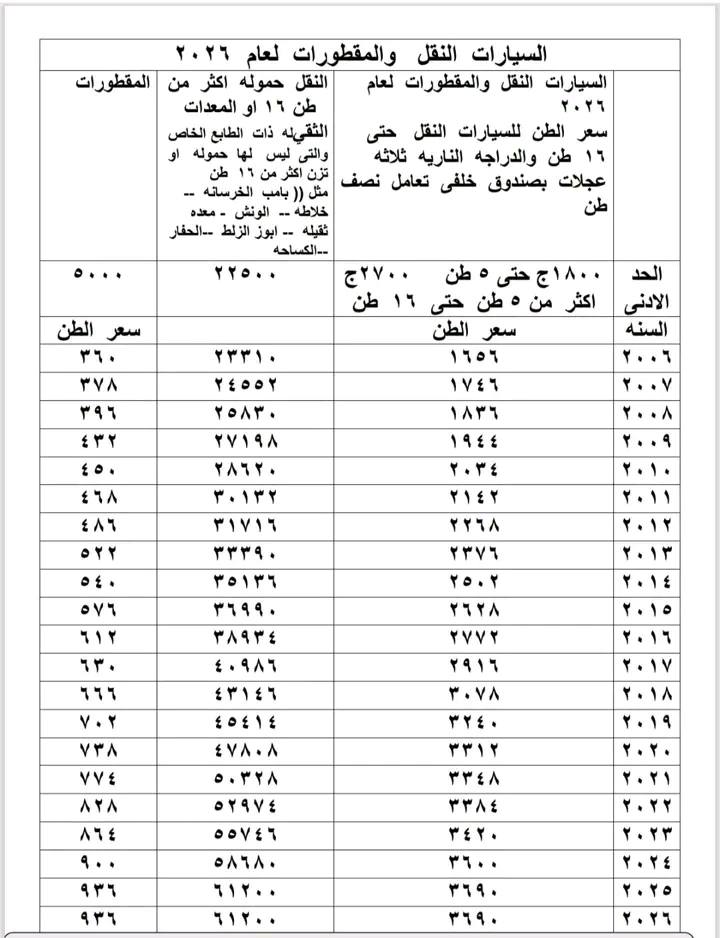 السيارات النقل والمقطورات لعام ٢٠٢٦
السيارات النقل والمقطورات لعام
٢٠٢٦
سعر الطن للسيارات النقل حتى
١٦ طن والدراجه الناريه ثلاثه
عجلات بصندوق خلفى تعامل نصف
طن
النقل حموله اكثر من
١٦ طن او المعدات
الثقيله ذات الطابع الخاص
والتى ليس لها حموله او
تزن اكثر من ١٦ طن
مثل (( بامب الخرسانه --
خلاطه -- الونش - معده
ثقيله -- ابوز الزلط --الحفار
--الكساحه
المقطورات
الحد الادنى
١٨٠٠ج حتى ٥ طن ٢٧٠٠ج
اكثر من ٥ طن حتى ١٦ طن
٢٢٥٠٠
٥٠٠٠
السنه سعر الطن سعر الطن
٢٠٠٦ ١٦٥٦ ٢٣٣١٠ ٣٦٠
٢٠٠٧ ١٧٤٦ ٢٤٥٥٢ ٣٧٨
٢٠٠٨ ١٨٣٦ ٢٥٨٣٠ ٣٩٦
٢٠٠٩ ١٩٤٤ ٢٧١٩٨ ٤٣٢
٢٠١٠ ٢٠٣٤ ٢٨٦٢٠ ٤٥٠
٢٠١١ ٢١٤٢ ٣٠١٣٢ ٤٦٨
٢٠١٢ ٢٢٦٨ ٣١٧١٦ ٤٨٦
٢٠١٣ ٢٣٧٦ ٣٣٣٩٠ ٥٢٢
٢٠١٤ ٢٥٠٢ ٣٥١٣٦ ٥٤٠
٢٠١٥ ٢٦٢٨ ٣٦٩٩٠ ٥٧٦
٢٠١٦ ٢٧٧٢ ٣٨٩٣٤ ٦١٢
٢٠١٧ ٢٩١٦ ٤٠٩٨٦ ٦٣٠
٢٠١٨ ٣٠٧٨ ٤٣١٤٦ ٦٦٦
٢٠١٩ ٣٢٤٠ ٤٥٤١٤ ٧٠٢
٢٠٢٠ ٣٣١٢ ٤٧٨٠٨ ٧٣٨
٢٠٢١ ٣٣٤٨ ٥٠٣٢٨ ٧٧٤
٢٠٢٢ ٣٣٨٤ ٥٢٩٧٤ ٨٢٨
٢٠٢٣ ٣٤٢٠ ٥٥٧٤٦ ٨٦٤
٢٠٢٤ ٣٦٠٠ ٥٨٦٨٠ ٩٠٠
٢٠٢٥ ٣٦٩٠ ٦١٢٠٠ ٩٣٦
٢٠٢٦ ٣٦٩٠ ٦١٢٠٠ ٩٣٦